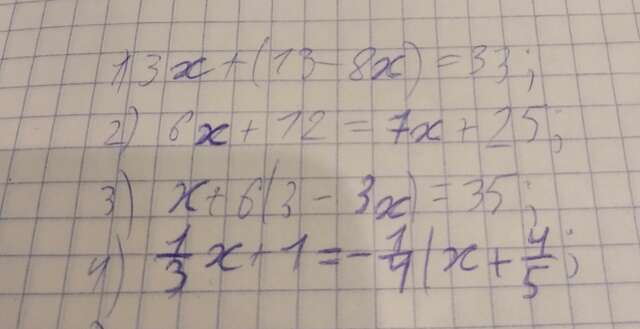 1) 3x+(13-8x)=33;
2) 6x+12=7x+25;
3) x+6(3-3x)=35;
4) 1/3 x+1=-1/4(x+4/5;